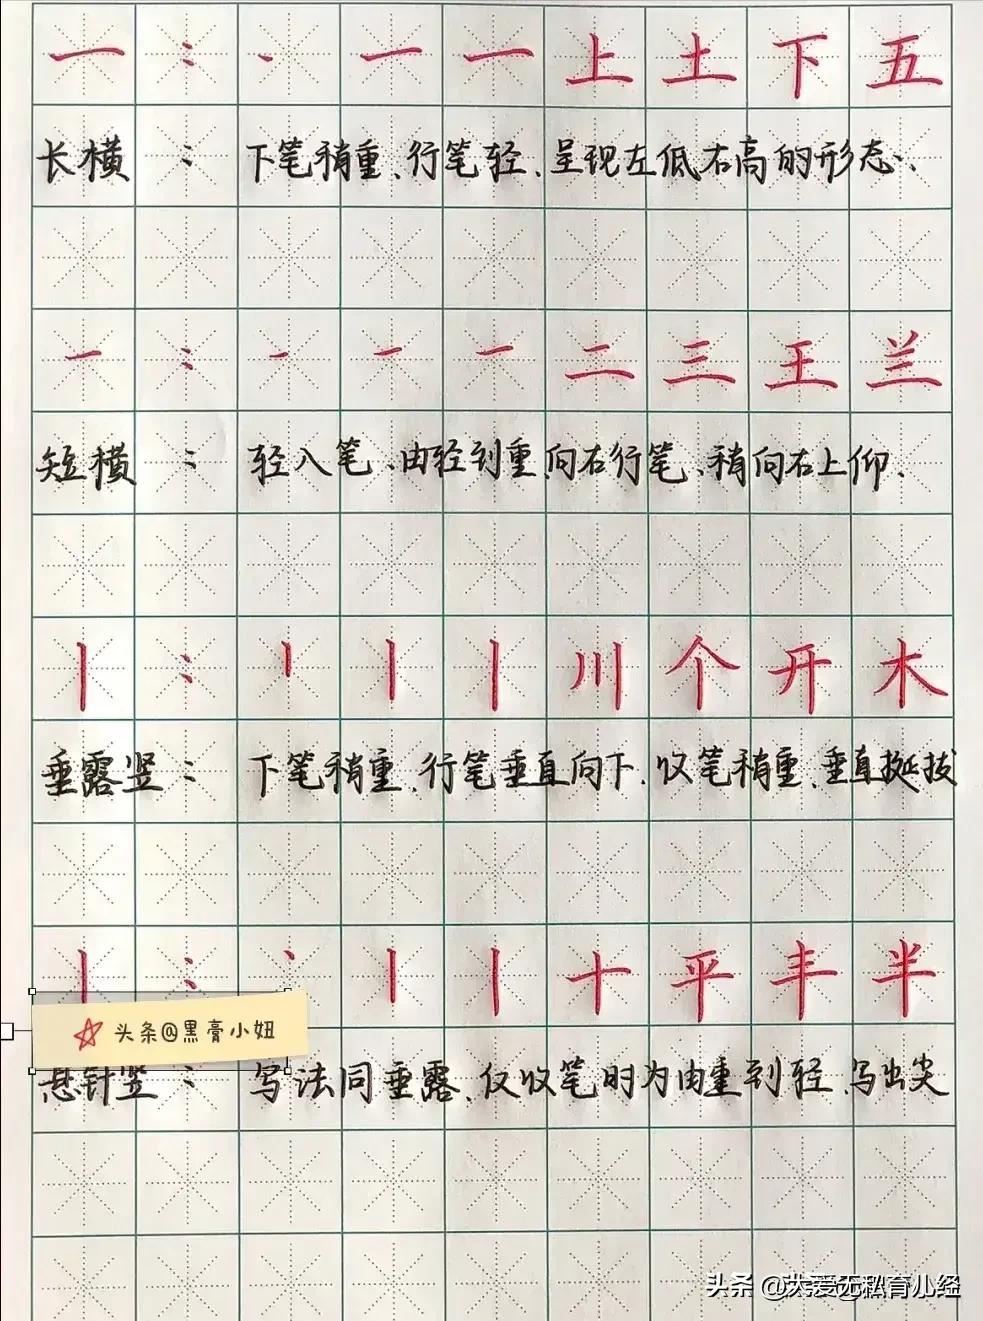 一 : 丶 一 一 上 土 下 五
长横 : 下笔稍重、行笔轻、呈现左低右高的形态.
一 : 一 一 一 二 三 王 兰
短横 : 轻入笔、由轻到重,向右行笔、稍向右上仰.
丨 : 丨 丨 丨 川 个 开 木
垂露竖 : 下笔稍重、行笔垂直向下.收笔稍重、垂直挺拔
丨 : 丶 丨 丨 十 平 丰 半
头条@黑膏小妞
悬针竖 : 写法同垂露、仅收笔时为由重到轻.写出尖
头条 @大爱无私育儿经